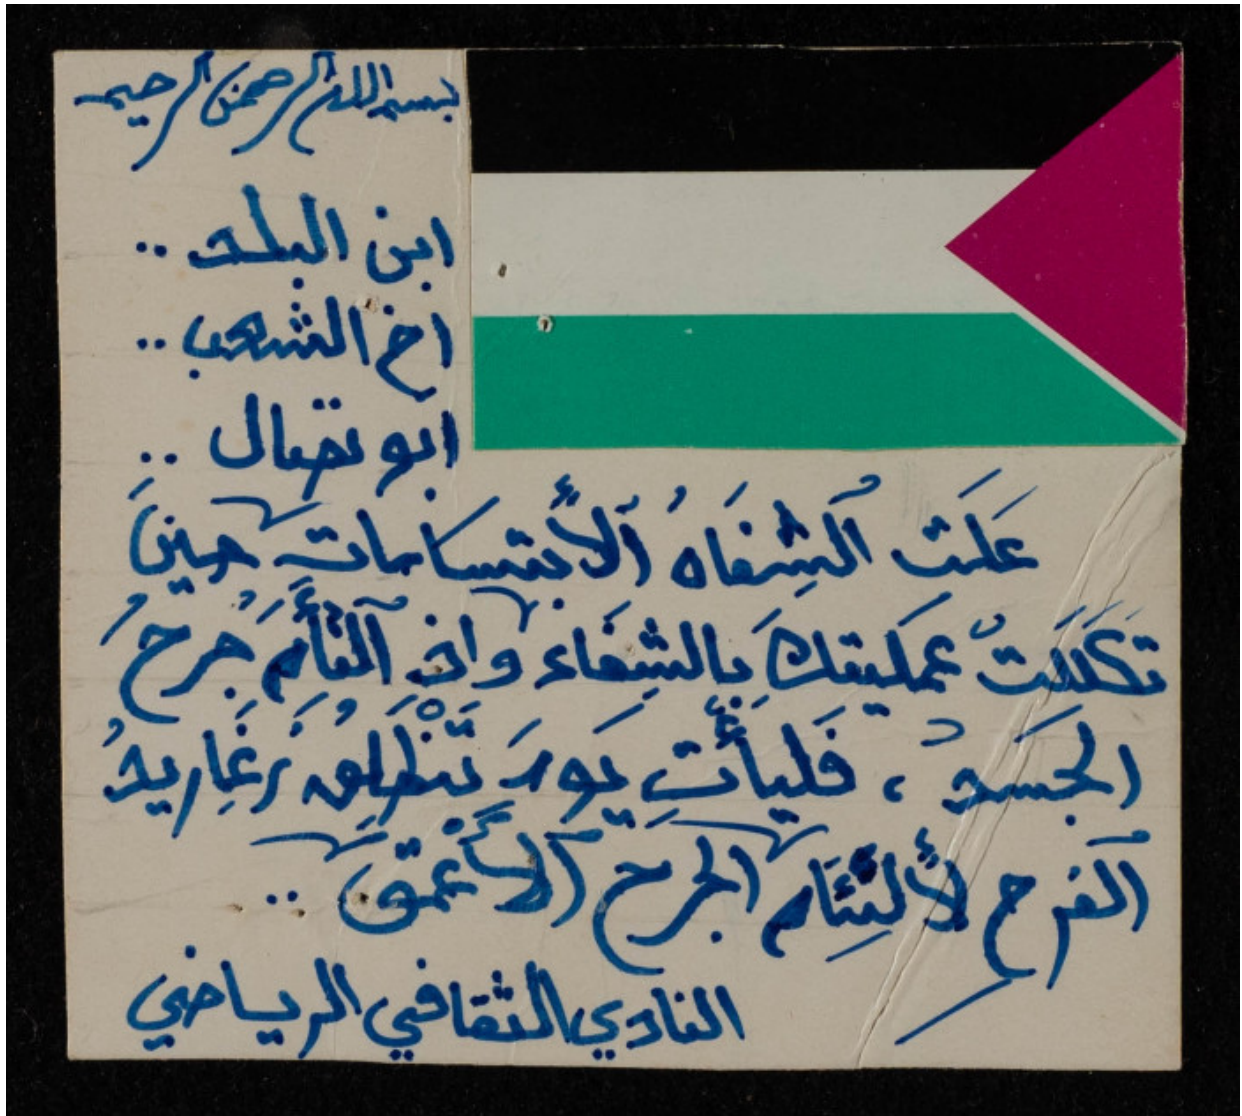 بسم الله الرحمن الرحيم
ابن البلد ..
اخ الشعب ..
ابو نضال ..
عَلَت الشِفَاهُ الأبتسامات حينَ
تكَلَلَتْ عمَليتكَ بالشِفَاء واذ التأَمَ جرحُ
الجسد ، فليأتِ يومَ تنْطَلِقُ زغاريدُ
الفرح لألتئَام الجرح الأعمق ..
النادي الثقافي الرياضي